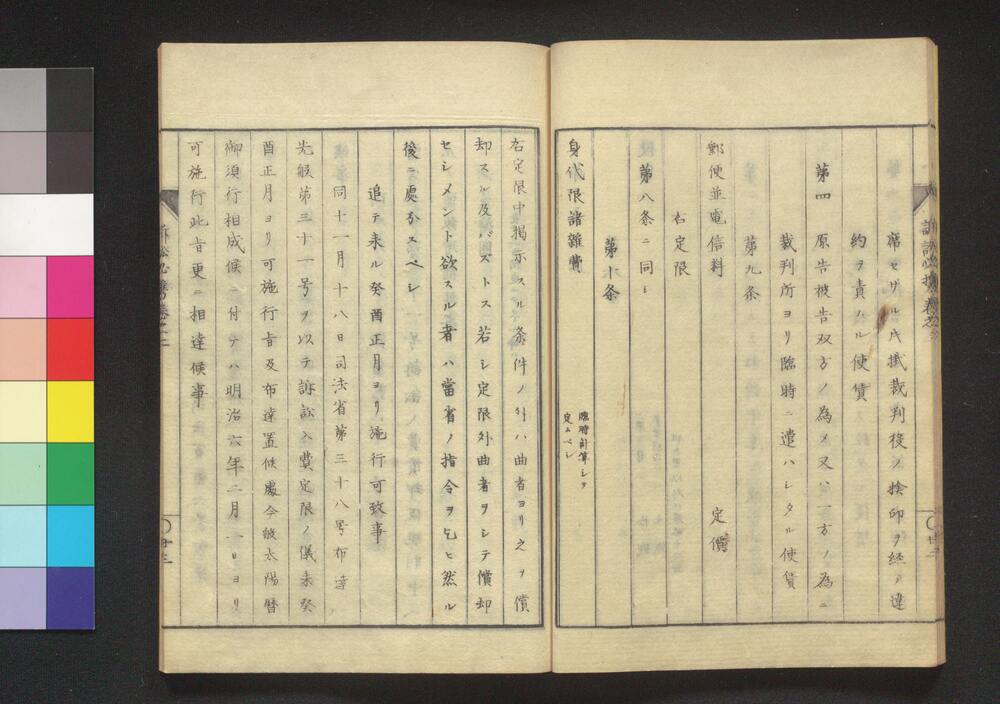 席セザル片掛裁判後ノ検印ヲ経ノ違
約ヲ責ムル使賃
第四　原告被告双方ノ為メ又ハ一方ノ為ニ
裁判所ヨリ臨時ニ遣ハシタル使賃
第九条
郵便並電信料　定價
右定限
第八条ニ同シ
第十条
身代限諸雑費　臨時計算シテ
定ムベシ
右定限中掲示スル条件ノ外ハ曲者ヨリ之ヲ償
却スル及バズトス若シ定限外曲者ヲシテ償却
セシメント欲スル者ハ當省ノ指令ヲ乞ヒ然ル
後ニ處分スベシ
追テ来ル癸酉正月ヨリ施行可致事
同十一月十八日司法省第三十八号布達
先般第三十一号ヲ以テ訴訟入費定限ノ儀来癸
酉正月ヨリ可施行旨及布達置候處今般太陽暦
御頒行相成候ニ付テハ明治六年二月一日ヨリ
可施行此旨更ニ相達候事
訴訟必携巻之二
〇廿三